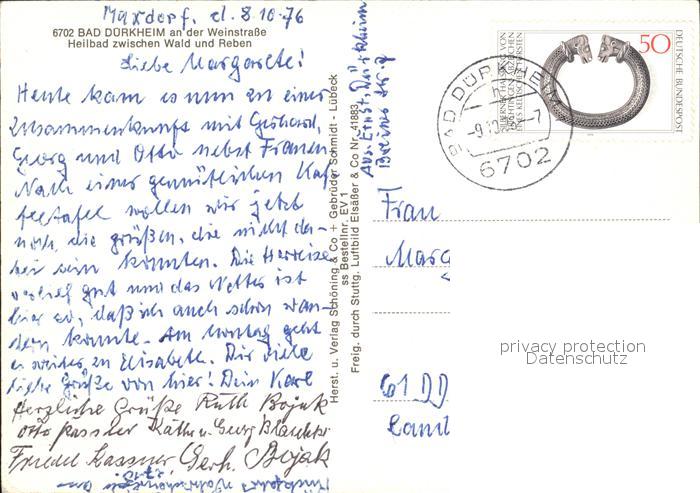 Maxdorf, d. 8.10.76
6702 BAD DÜRKHEIM an der Weinstraße
Heilbad zwischen Wald und Reben
Liebe Margarete!
Heute kam es nun zu einer
Zusammenkunft mit Gerhard,
Georg und Otto nebst Frauen
Nach einer gemütlichen Kaf-
feetafel wollen wir jetzt
noch die grüßen, die nicht da-
bei sein konnten. Die Herreise
verlief gut und das Wetter ist
hier so, daß ich auch schon wan-
dern konnte. Am Montag geht
es weiter zu Elisabeth. Dir viele
liebe Grüße von hier! Dein Karl
Herzliche Grüße Ruth Bojak
Otto Käthe u. Georg
Friedel Gerh. Bojak
Herst. u. Verlag Schöning & Co + Gebrüder Schmidt - Lübeck
ss Bestellnr. EV 1
Freig. durch Stuttg. Luftbild Elsäßer & Co Nr. 41883
Abs. Ernst,
DEUTSCHE BUNDESPOST
50
BAD DÜRKHEIM
-9.10.
-7
6702
Frau
Marg
61 DD
privacy protection
Datenschutz